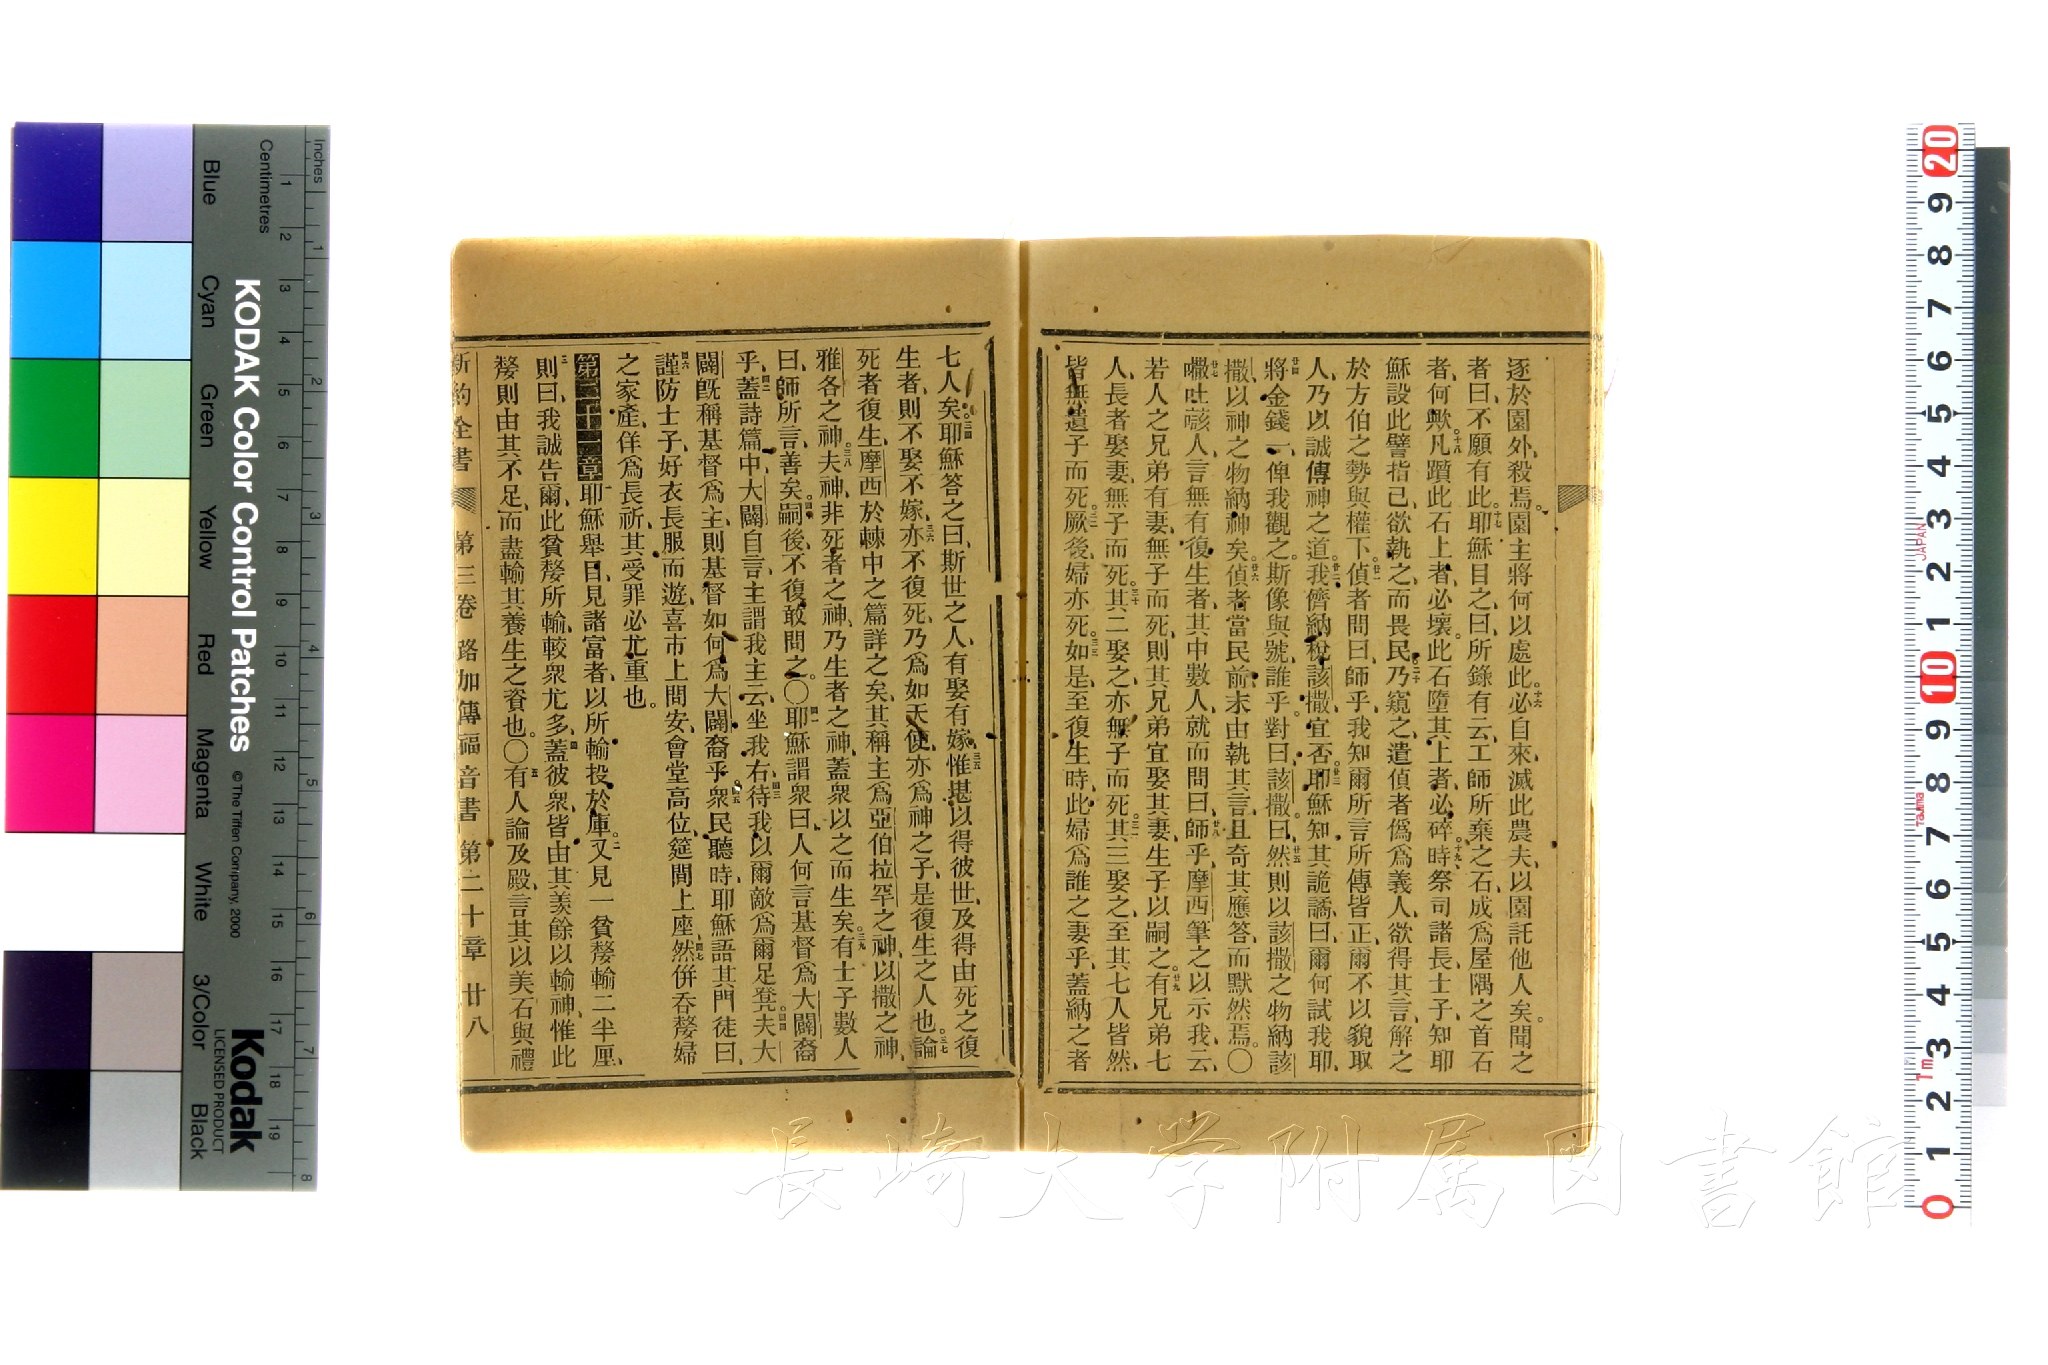 逐於園外、殺焉。園主將何以處此。十六必自來、滅此農夫、以園託他人矣。聞之
者曰、不願有此。十七耶穌目之、曰、所錄有云、工師所棄之石、成爲屋隅之首石
者、何歟。十八凡躓此石上者、必壞。此石墮其上者、必碎。十九時祭司諸長、士子、知耶
穌設此譬指己、欲執之、而畏民。二十乃窺之、遣偵者僞爲義人、欲得其言、解之
於方伯之勢與權下。廿一偵者問曰、師乎、我知爾所言所傳皆正、爾不以貌取
人、乃以誠傳神之道。廿二我儕納稅該撒、宜否。廿三耶穌知其詭譎、曰、爾何試我耶、
廿四將金錢一俾我觀之。斯像與號誰乎。對曰、該撒。廿五曰、然則以該撒之物納該
撒、以神之物納神矣。廿六偵者當民前、末由執其言、且奇其應答、而默然焉。〇
廿七㘔吐𧧸人、言無有復生者、其中數人、就而問曰、廿八師乎、摩西筆之以示我云、
若人之兄弟有妻、無子而死、則其兄弟宜娶其妻、生子以嗣之。廿九有兄弟七
人、長者娶妻、無子而死。三十其二娶之、亦無子而死。三一其三娶之、至其七人皆然、
皆無遺子而死。三二厥後、婦亦死。三三如是、至復生時、此婦爲誰之妻乎、蓋納之者
七人矣。三四耶穌答之曰、斯世之人、有娶有嫁、三五惟堪以得彼世、及得由死之復
生者、則不娶不嫁、三六亦不復死、乃爲如天使、亦爲神之子、是復生之人也。三七論
死者復生、摩西於棘中之篇詳之矣、其稱主爲亞伯拉罕之神、以撒之神、
雅各之神。三八夫神、非死者之神、乃生者之神、蓋衆以之而生矣。三九有士子數人
曰、師所言善矣。四十嗣後、不復敢問之。〇四一耶穌謂衆曰、人何言基督爲大闢裔
乎、四二蓋詩篇中、大闢自言、主謂我主云、坐我右、四三待我以爾敵爲爾足凳。四四夫大
闢旣稱基督爲主、則基督如何爲大闢裔乎。四五衆民聽時、耶穌語其門徒曰、
四六謹防士子、好衣長服而遊、喜市上問安、會堂高位、筵間上座、四七然併吞嫠婦
之家產、佯爲長祈、其受罪必尤重也。
第二十一章耶穌舉目、見諸富者、以所輸投於庫。二又見一貧嫠輸二半厘、
三則曰、我誠告爾、此貧嫠所輸、較衆尤多、四蓋彼衆、皆由其羨餘以輸神、惟此
嫠則由其不足、而盡輸其養生之資也。〇五有人論及殿、言其以美石與禮
新約全書 第三卷 路加傳福音書 第二十章 廿八
KODAK Color Control Patches
© The Tiffen Company, 2000
Kodak
LICENSED PRODUCT
Inches
Centimetres
Blue
Cyan
Green
Yellow
Red
Magenta
White
3/Color
Black
JAPAN
Tajima
1m
長崎大学附属図書館